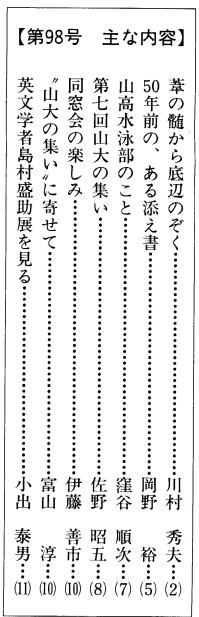 【第98号　主な内容】
葦の髄から底辺のぞく…………川村　秀夫…(2)
50年前の、ある添え書…………岡野　裕…(5)
山高水泳部のこと…………窪谷　順次…(7)
第七回山大の集い…………佐野　昭五…(8)
同窓会の楽しみ…………伊藤　善市…(10)
〝山大の集い〟に寄せて…………富山　淳…(10)
英文学者島村盛助展を見る…………小出　泰男…(11)